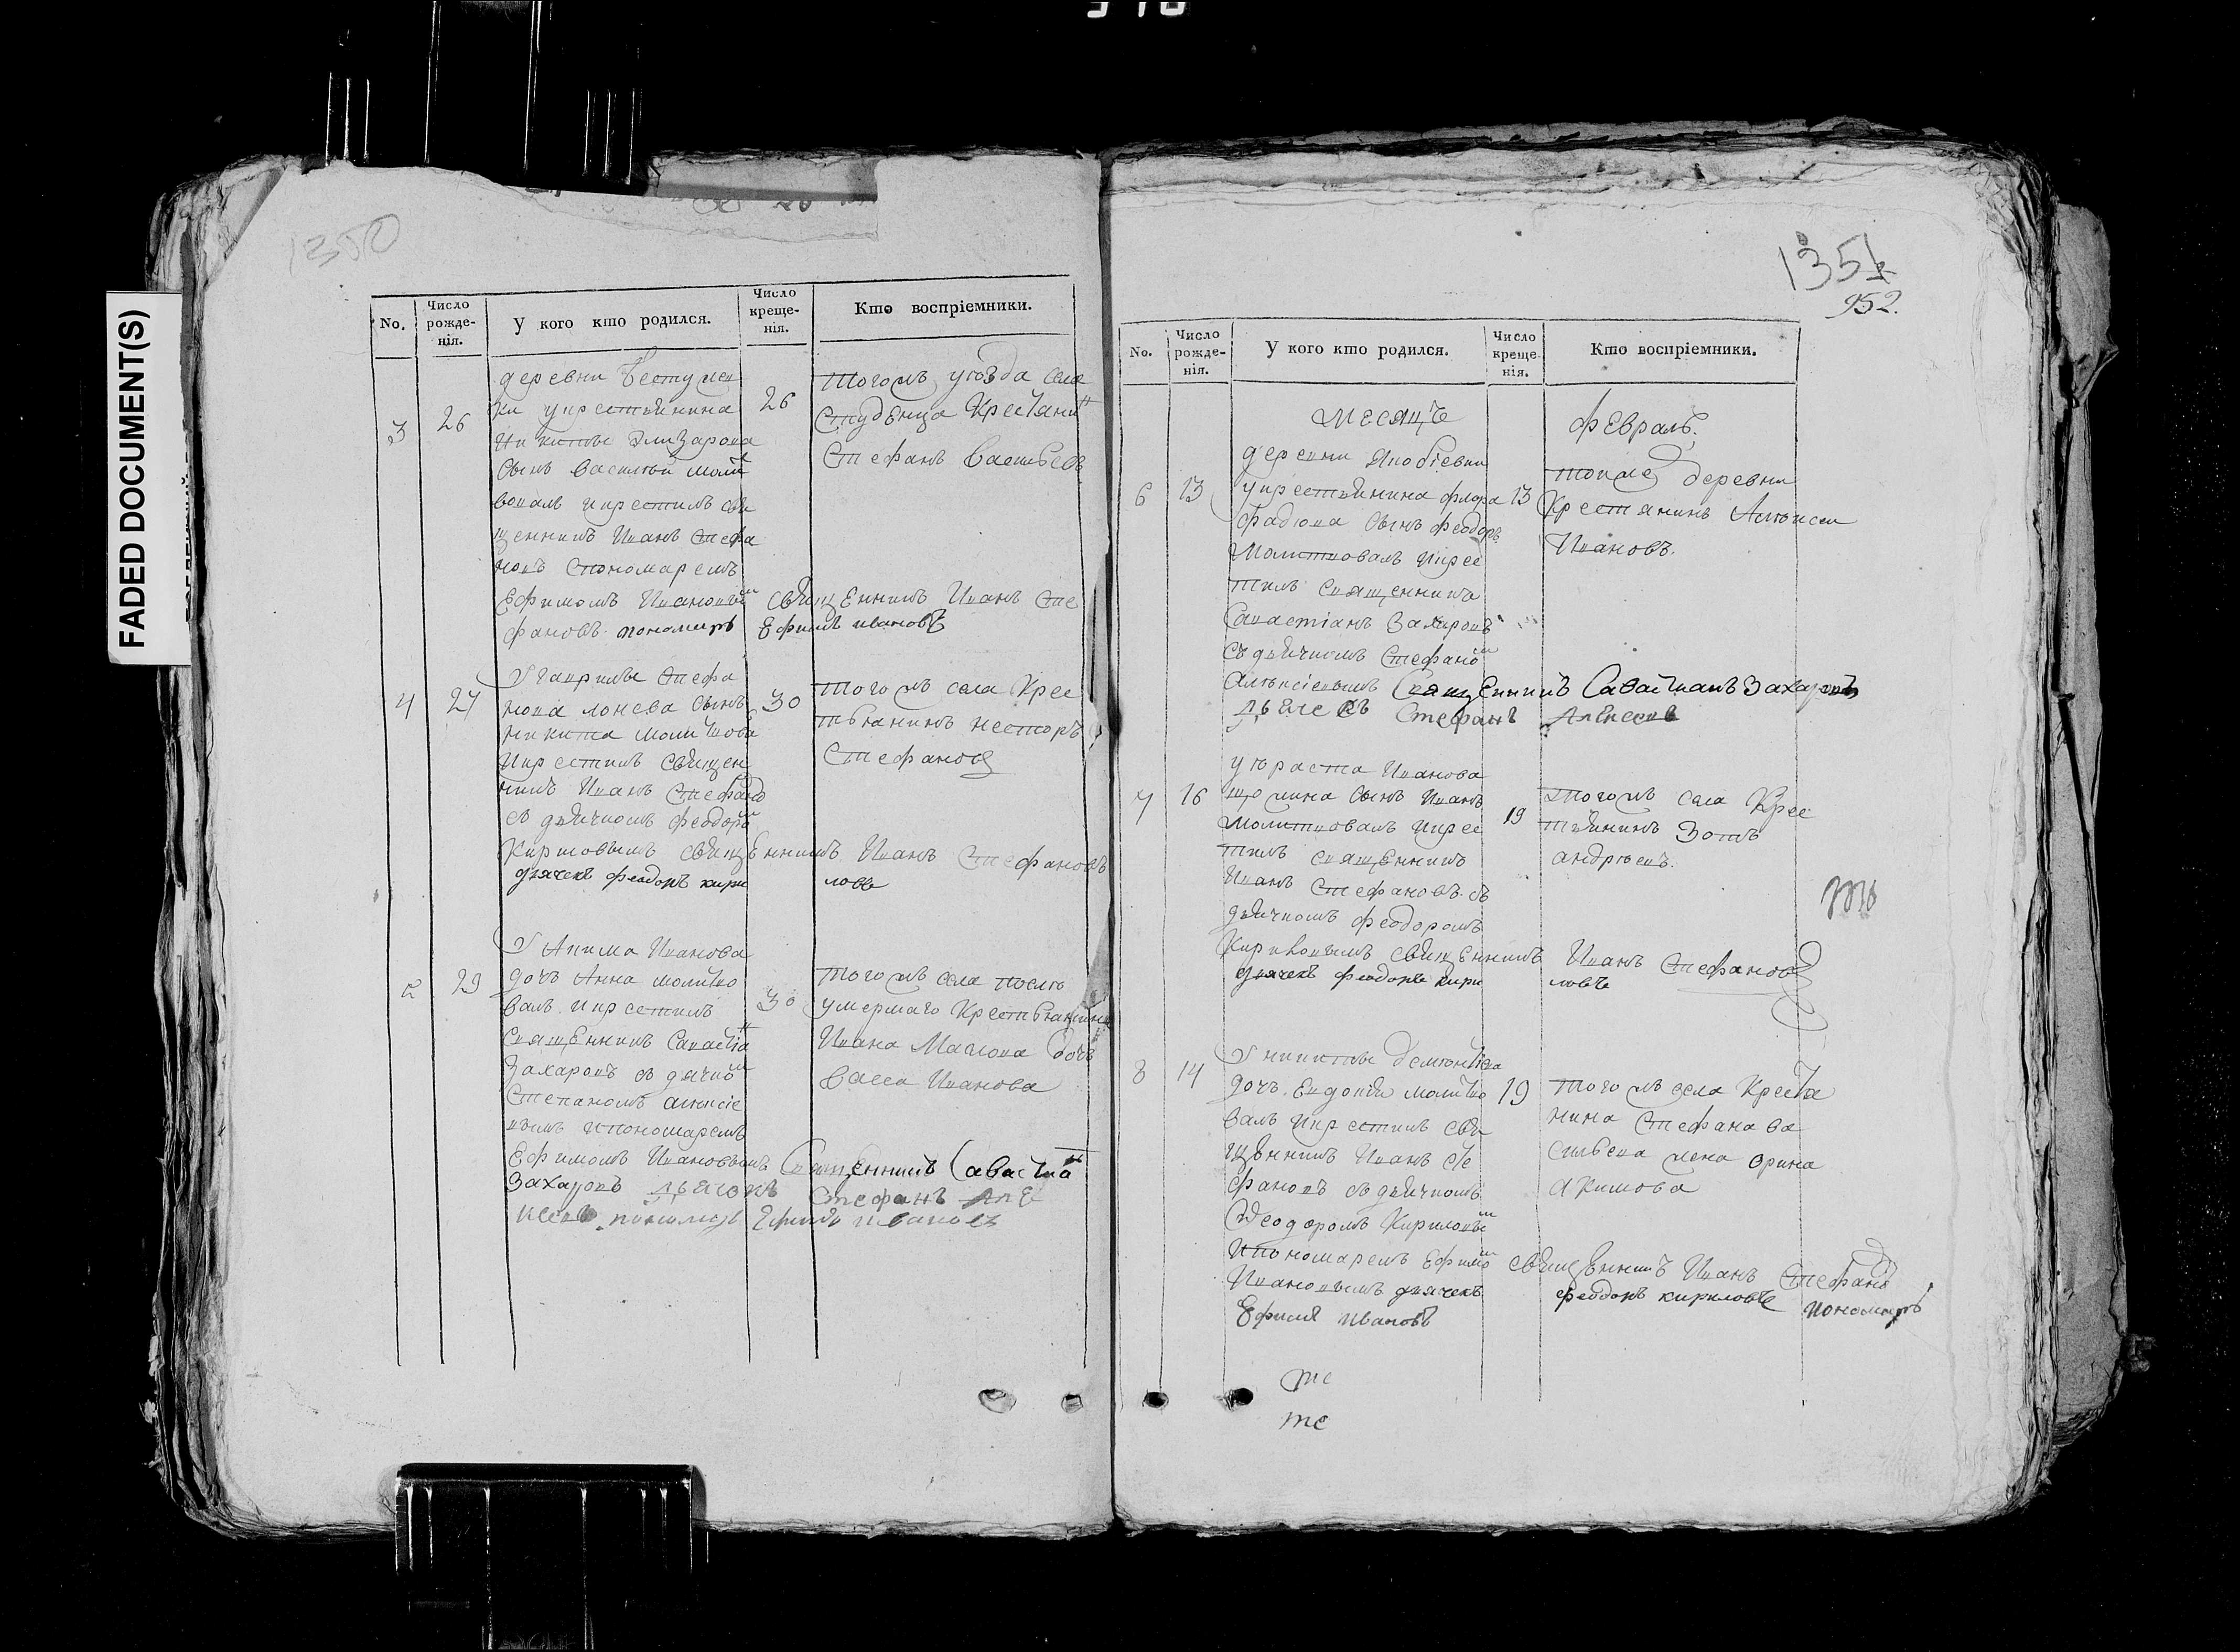 FADED DOCUMENT(S)
1350
No.
Число рожде-нія.
У кого кто родился.
Число креще-нія.
Кто воспріемники.
3
26
деревни
ки укрестьянина
Никиты Элизарова
сынъ Василий молит
вовалъ икрестилъ свя
щенникъ Иванъ Стефа
новъ спономаремъ
Ефимомъ Ивановым
26
тогожъ уѣзда села
Студенца Крестьянин
Стефанъ Васильевъ
священникъ Иванъ Сте
фановъ пономарь Ефимъ Ивановъ
4
27
У Гаврилы Стефа
нова сынъ
Никита молитвова
икрестилъ священ
никъ Иванъ Стефано
съ дьячкомъ Феодором
Кириловымъ
30
тогожъ села Крес
тьянинъ Несторъ
Стефановъ
священникъ Иванъ Стефановъ
дьячекъ Феодоръ Кири
ловъ
5
29
У Акима Иванова
дочь Анна молитво
валъ икрестилъ
священникъ Савастіа
Захаровъ съ дячко
Степаномъ алексіе
вымъ ипономаремъ
Ефимомъ Ивановымъ
30
тогожъ села послѣ
умершаго Крестьянина
Ивана дочь
Васса Иванова
Священникъ Савастиа
Захаровъ дьячокъ Стефанъ Але
ксевъ пономарь Ефимъ Ивановъ
1351
952.
No.
Число рожде-нія.
У кого кто родился.
Число креще-нія.
Кто воспріемники.
Месяцъ
февраль
6
13
деревни
укрестьянина флора
сынъ феодоръ
Молитвовалъ икрес
тилъ священникъ
Савастіанъ Захаровъ
съ дьячкомъ Стефано
Алексіевымъ
13
тоиже деревни
Крестянинъ Алексеи
Ивановъ.
Священникъ Савастианъ Захаровъ
дьячекъ Стефанъ Алексеевъ
7
16
Иванова
сынъ Иванъ
Молитвовалъ икрес
тилъ священникъ
Иванъ Стефановъ съ
дьячкомъ феодоромъ
Кириловымъ
19
тогожъ села Крес
тьянинъ Зотъ
андреевъ.
священникъ Иванъ Стефановъ
дьячекъ феодоръ Кири
ловъ
8
14
У никиты
дочь Евдокия молитво
валъ икрестилъ свя
щенникъ Иванъ Сте
фановъ съ дьячкомъ
Феодоромъ Кириловы
ипономаремъ Ефимо
Ивановымъ
19
тогожъ села Крестья
нина Стефана Ва
сильева жена Орина
Акимова
священникъ Иванъ Стефано
дьячекъ феодоръ кириловъ пономарь
Ефимъ Ивановъ
те
те